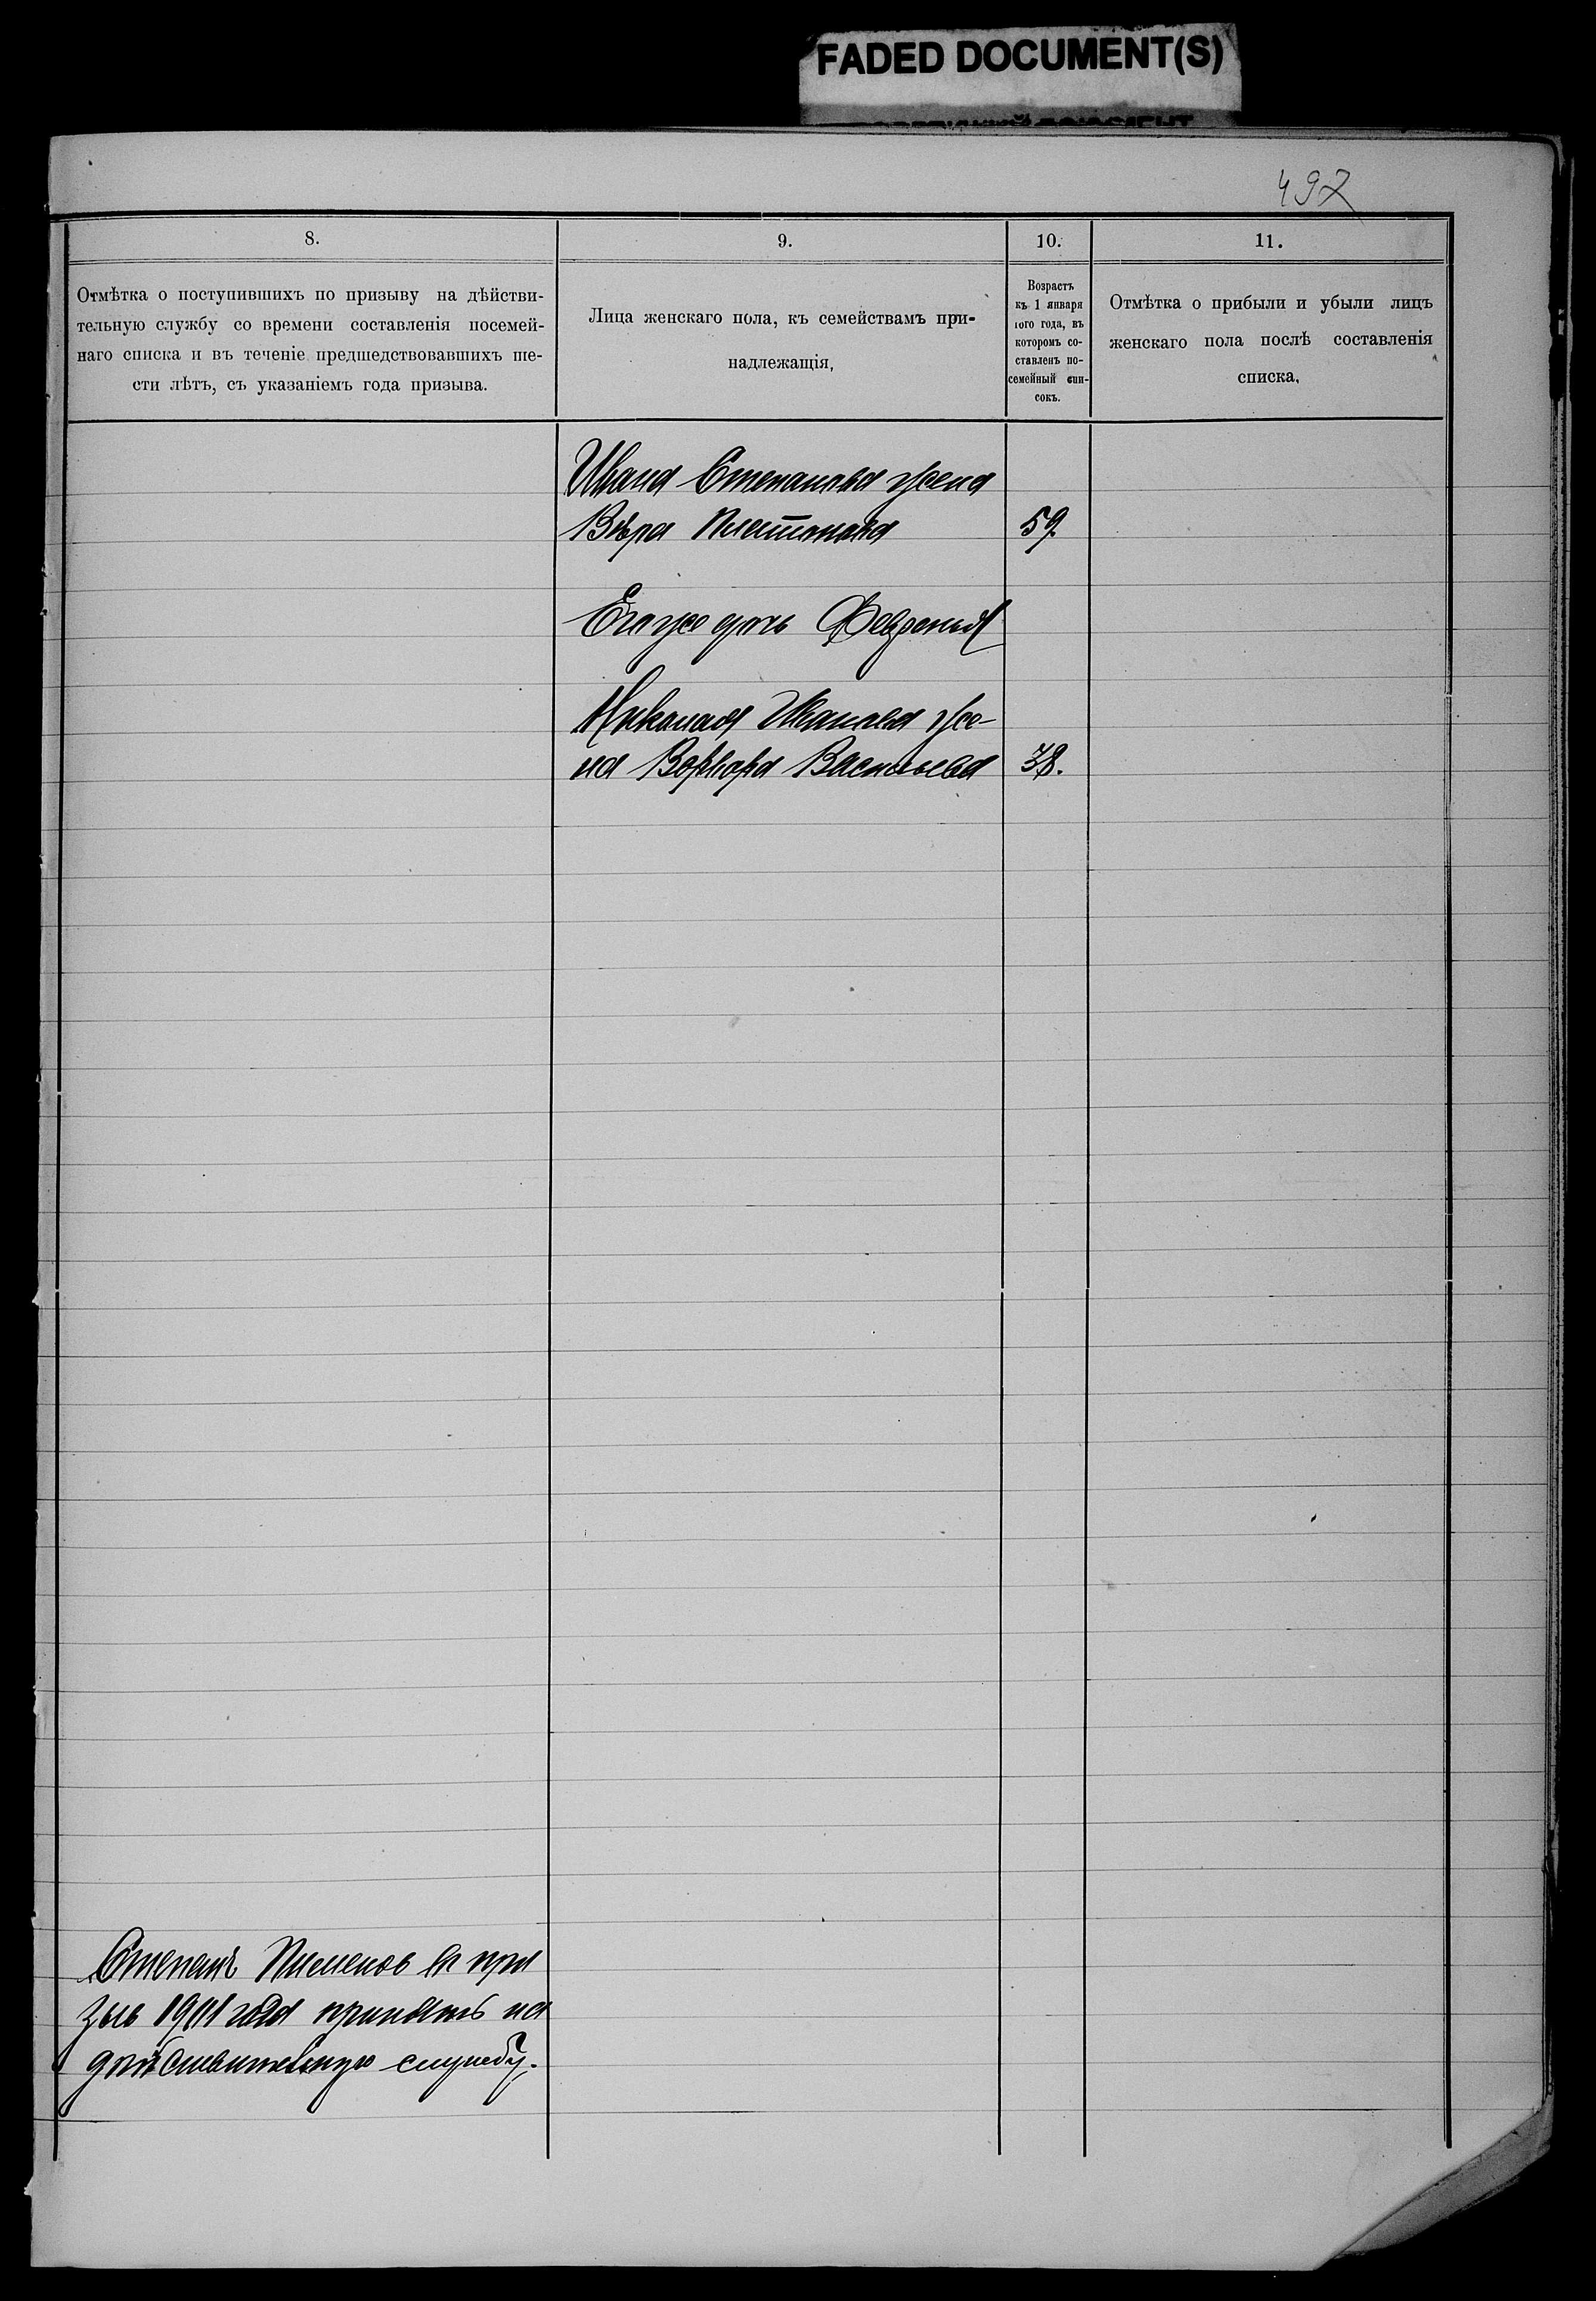 FADED DOCUMENT(S)
497
8.
9.
10.
11.
Отмѣтка о поступившихъ по призыву на дѣйстви-
тельную службу со времени составленія посемей-
наго списка и въ теченіе предшедствовавшихъ ше-
сти лѣтъ, съ указаніемъ года призыва.
Лица женскаго пола, къ семействамъ при-
надлежащія,
Возрастъ
къ 1 января
того года, въ
которомъ со-
ставленъ по-
семейный спи-
сокъ.
Отмѣтка о прибыли и убыли лицъ
женскаго пола послѣ составленія
списка.
Ивана Степанова жена
Вѣра Платонова 59.
Его же дочь Февронья
Николая Иванова же-
на Варвара Васильева 38.
Степанъ Пименов въ при
зыв 1901 года принятъ на
дѣйствительную службу.